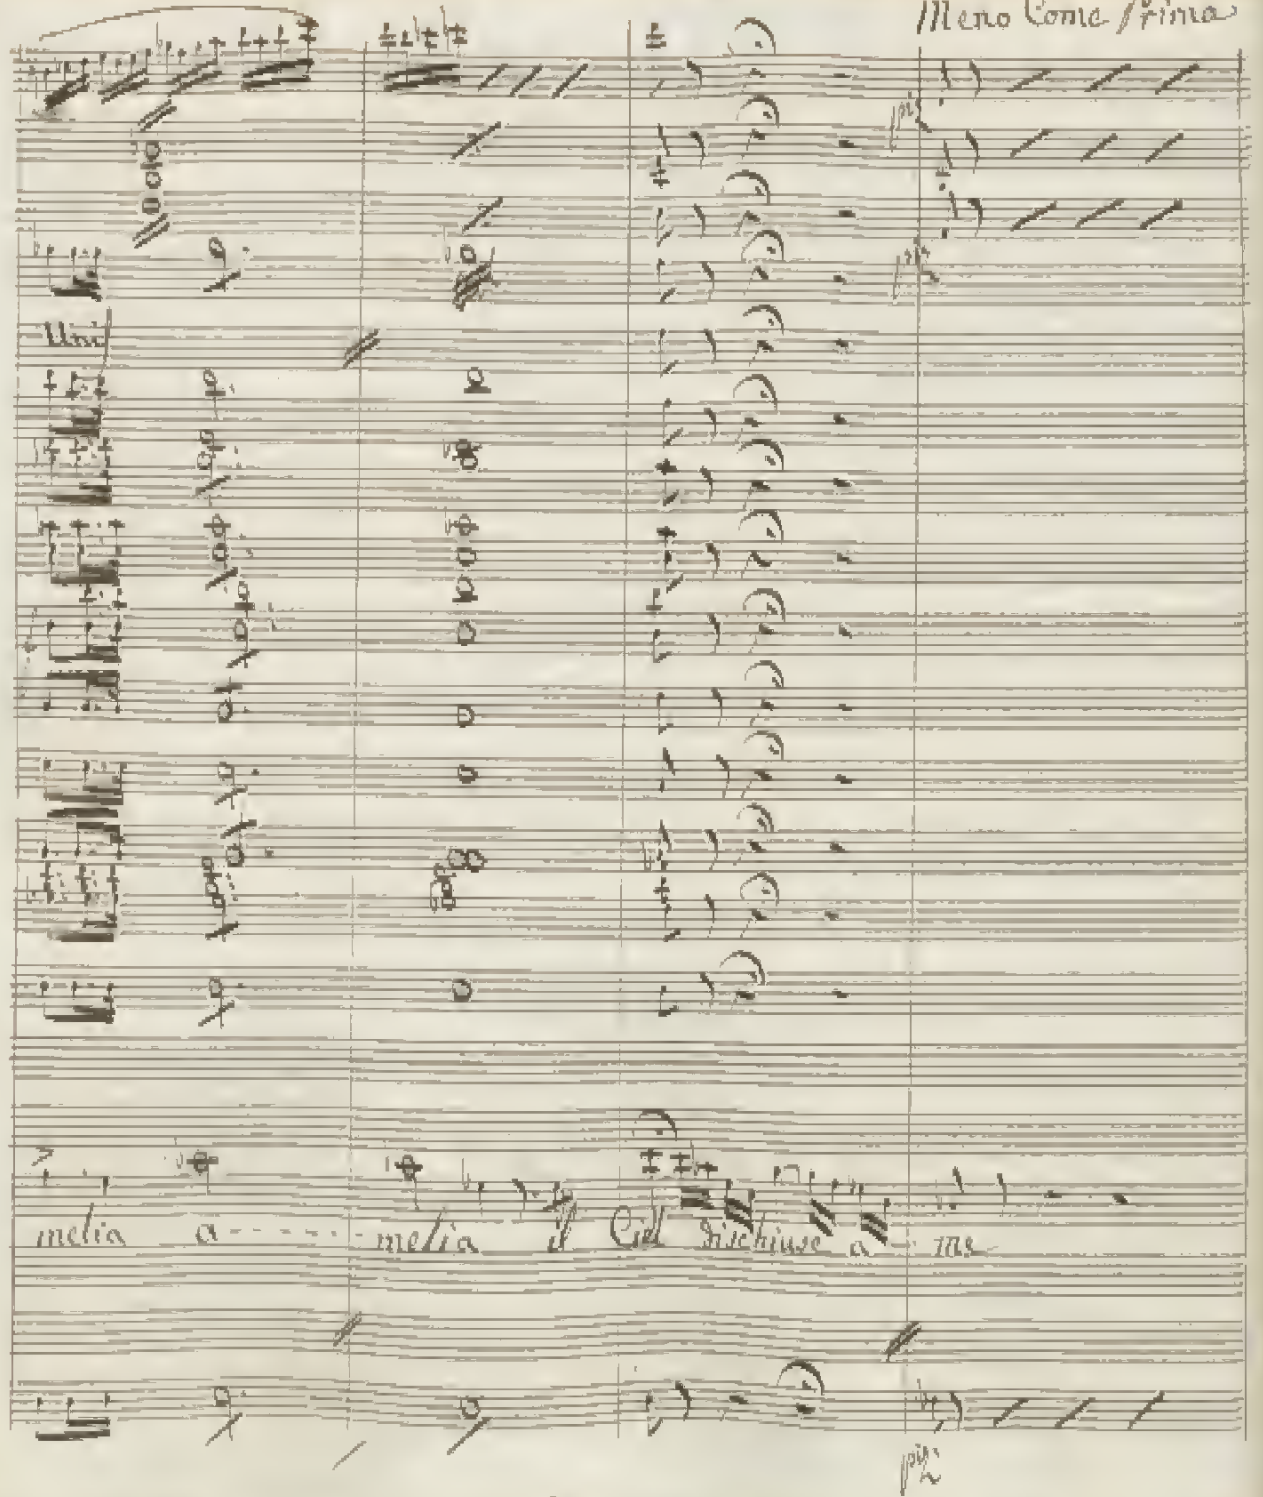 Meno Come Prima
piz
piz
Uni
melia a - - - - - melia il Ciel dischiuse a - me
piz